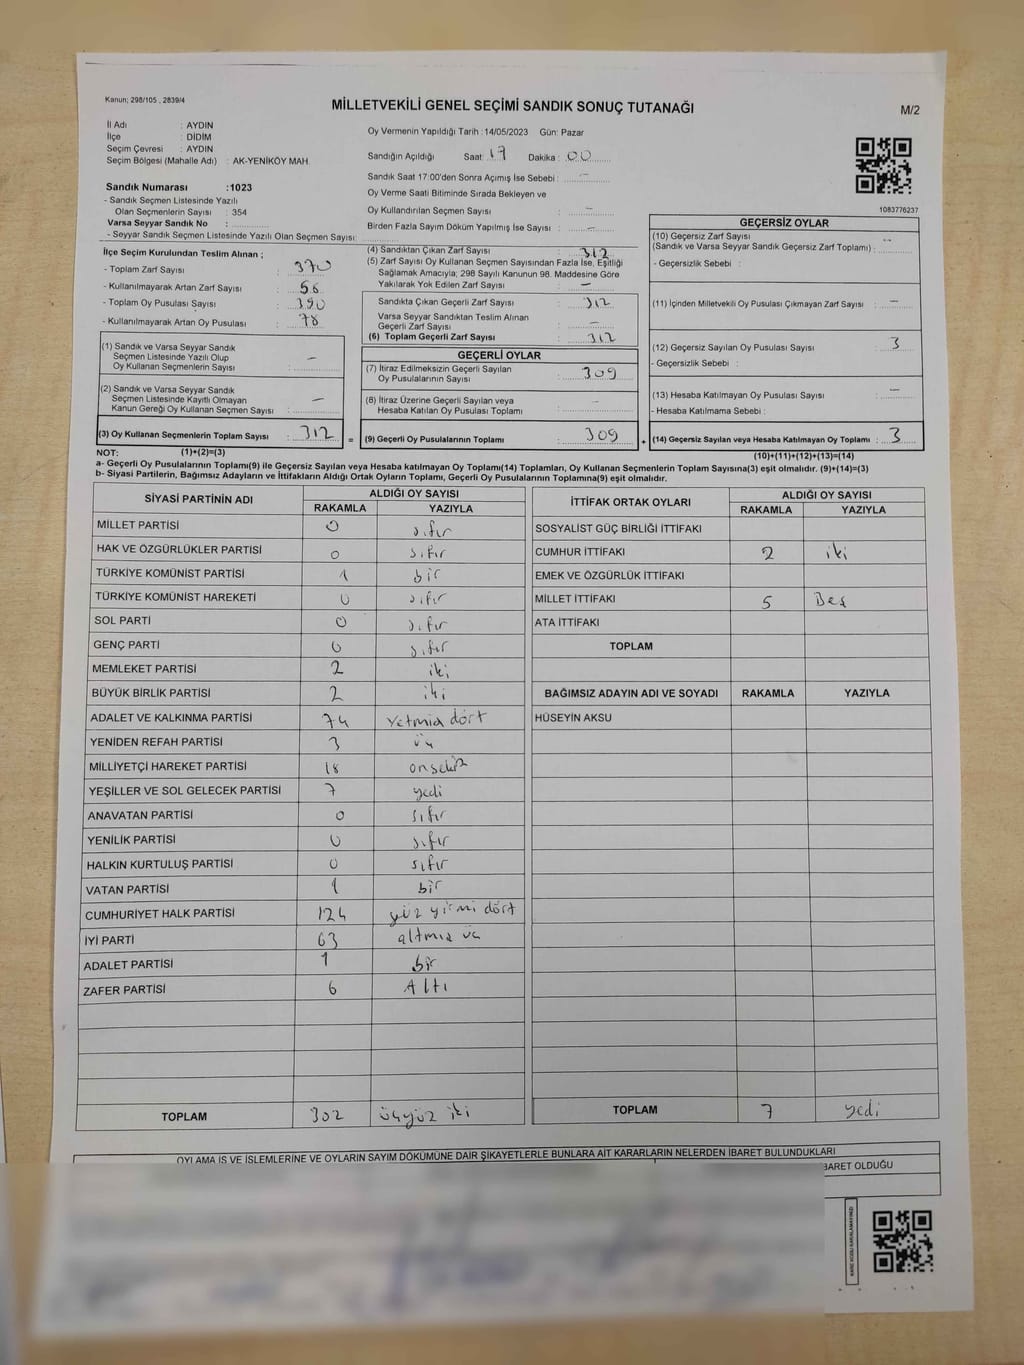 Kanun; 298/105 , 2839/4
MİLLETVEKİLİ GENEL SEÇİMİ SANDIK SONUÇ TUTANAĞI
M/2
İl Adı : AYDIN
İlçe : DİDİM
Seçim Çevresi : AYDIN
Seçim Bölgesi (Mahalle Adı) : AK-YENİKÖY MAH.
Sandık Numarası :1023
- Sandık Seçmen Listesinde Yazılı
Olan Seçmenlerin Sayısı : 354
Varsa Seyyar Sandık No :
- Seyyar Sandık Seçmen Listesinde Yazılı Olan Seçmen Sayısı:
Oy Vermenin Yapıldığı Tarih :14/05/2023 Gün: Pazar
Sandığın Açıldığı Saat: 17 Dakika : 00
Sandık Saat 17:00'den Sonra Açımış İse Sebebi : -
Oy Verme Saati Bitiminde Sırada Bekleyen ve
Oy Kullandırılan Seçmen Sayısı : -
Birden Fazla Sayım Döküm Yapılmış İse Sayısı : -
1083776237
İlçe Seçim Kurulundan Teslim Alınan ;
- Toplam Zarf Sayısı : 370
- Kullanılmayarak Artan Zarf Sayısı : 58
- Toplam Oy Pusulası Sayısı : 390
- Kullanılmayarak Artan Oy Pusulası : 78
(1) Sandık ve Varsa Seyyar Sandık
Seçmen Listesinde Yazılı Olup
Oy Kullanan Seçmenlerin Sayısı : -
(2) Sandık ve Varsa Seyyar Sandık
Seçmen Listesinde Kayıtlı Olmayan
Kanun Gereği Oy Kullanan Seçmen Sayısı : -
(3) Oy Kullanan Seçmenlerin Toplam Sayısı : 312 =
(4) Sandıktan Çıkan Zarf Sayısı : 312
(5) Zarf Sayısı Oy Kullanan Seçmen Sayısından Fazla İse, Eşitliği
Sağlamak Amacıyla; 298 Sayılı Kanunun 98. Maddesine Göre
Yakılarak Yok Edilen Zarf Sayısı : -
Sandıkta Çıkan Geçerli Zarf Sayısı : 312
Varsa Seyyar Sandıktan Teslim Alınan
Geçerli Zarf Sayısı : -
(6) Toplam Geçerli Zarf Sayısı : 312
GEÇERLİ OYLAR
(7) İtiraz Edilmeksizin Geçerli Sayılan
Oy Pusulalarının Sayısı : 309
(8) İtiraz Üzerine Geçerli Sayılan veya
Hesaba Katılan Oy Pusulası Toplamı : -
(9) Geçerli Oy Pusulalarının Toplamı : 309 +
GEÇERSİZ OYLAR
(10) Geçersiz Zarf Sayısı
(Sandık ve Varsa Seyyar Sandık Geçersiz Zarf Toplamı) : -
- Geçersizlik Sebebi :
(11) İçinden Milletvekili Oy Pusulası Çıkmayan Zarf Sayısı : -
(12) Geçersiz Sayılan Oy Pusulası Sayısı : 3
- Geçersizlik Sebebi :
(13) Hesaba Katılmayan Oy Pusulası Sayısı : -
- Hesaba Katılmama Sebebi :
(14) Geçersiz Sayılan veya Hesaba Katılmayan Oy Pusulası Toplamı : 3
NOT: (1)+(2)=(3)
(10)+(11)+(12)+(13)=(14)
a- Geçerli Oy Pusulalarının Toplamı(9) ile Geçersiz Sayılan veya Hesaba katılmayan Oy Toplamı(14) Toplamları, Oy Kullanan Seçmenlerin Toplam Sayısına(3) eşit olmalıdır. (9)+(14)=(3)
b- Siyasi Partilerin, Bağımsız Adayların ve İttifakların Aldığı Ortak Oyların Toplamı, Geçerli Oy Pusulalarının Toplamına(9) eşit olmalıdır.
SİYASİ PARTİNİN ADI
ALDIĞI OY SAYISI
RAKAMLA YAZIYLA
MİLLET PARTİSİ 0 sıfır
HAK VE ÖZGÜRLÜKLER PARTİSİ 0 sıfır
TÜRKİYE KOMÜNİST PARTİSİ 1 bir
TÜRKİYE KOMÜNİST HAREKETİ 0 sıfır
SOL PARTİ 0 sıfır
GENÇ PARTİ 0 sıfır
MEMLEKET PARTİSİ 2 iki
BÜYÜK BİRLİK PARTİSİ 2 iki
ADALET VE KALKINMA PARTİSİ 74 Yetmiş dört
YENİDEN REFAH PARTİSİ 3 üç
MİLLİYETÇİ HAREKET PARTİSİ 18 onsekiz
YEŞİLLER VE SOL GELECEK PARTİSİ 7 yedi
ANAVATAN PARTİSİ 0 sıfır
YENİLİK PARTİSİ 0 sıfır
HALKIN KURTULUŞ PARTİSİ 0 sıfır
VATAN PARTİSİ 1 bir
CUMHURİYET HALK PARTİSİ 124 yüz yirmi dört
İYİ PARTİ 63 altmış üç
ADALET PARTİSİ 1 bir
ZAFER PARTİSİ 6 Altı
TOPLAM 302 üçyüz iki
İTTİFAK ORTAK OYLARI
ALDIĞI OY SAYISI
RAKAMLA YAZIYLA
SOSYALİST GÜÇ BİRLİĞİ İTTİFAKI
CUMHUR İTTİFAKI 2 iki
EMEK VE ÖZGÜRLÜK İTTİFAKI
MİLLET İTTİFAKI 5 Beş
ATA İTTİFAKI
TOPLAM
BAĞIMSIZ ADAYIN ADI VE SOYADI RAKAMLA YAZIYLA
HÜSEYİN AKSU
TOPLAM 7 yedi
OYLAMA İŞ VE İŞLEMLERİNE VE OYLARIN SAYIM DÖKÜMÜNE DAİR ŞİKAYETLERLE BUNLARA AİT KARARLARIN NELERDEN İBARET BULUNDUKLARI
BARET OLDUĞU